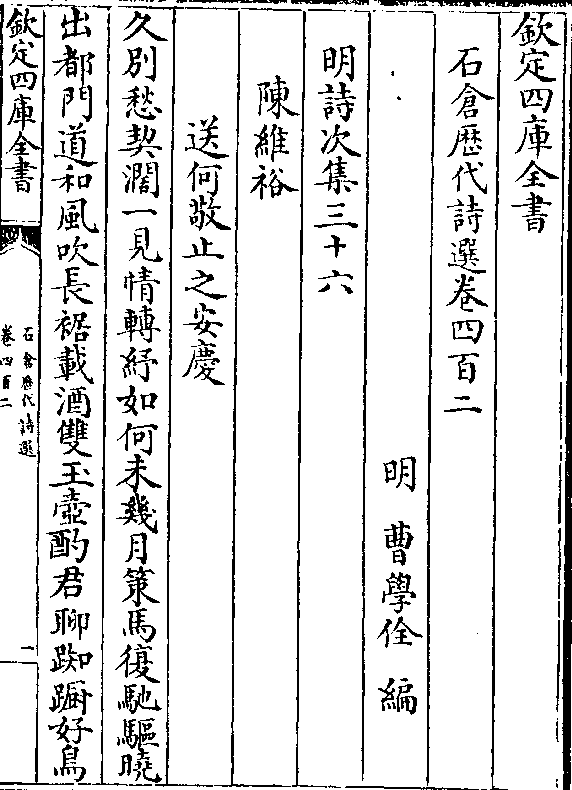 欽定四庫全書
石倉歷代詩選卷四百二
明 曹學佺 編
明詩次集三十六
陳維裕
送何敬止之安慶
久別愁契濶一見情轉紓如何未幾月策馬復馳驅曉
出都門道和風吹長裾載酒雙玉壺酌君聊踟蹰好鳥
欽定四庫全書
石倉歷代詩選
卷四百二
一